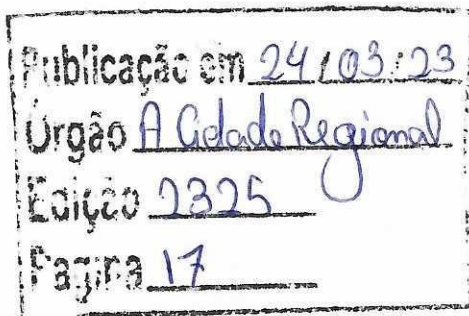 Publicação em 24/03/23
Órgão A Cidade Regional
Edição 2325
Pagina 17